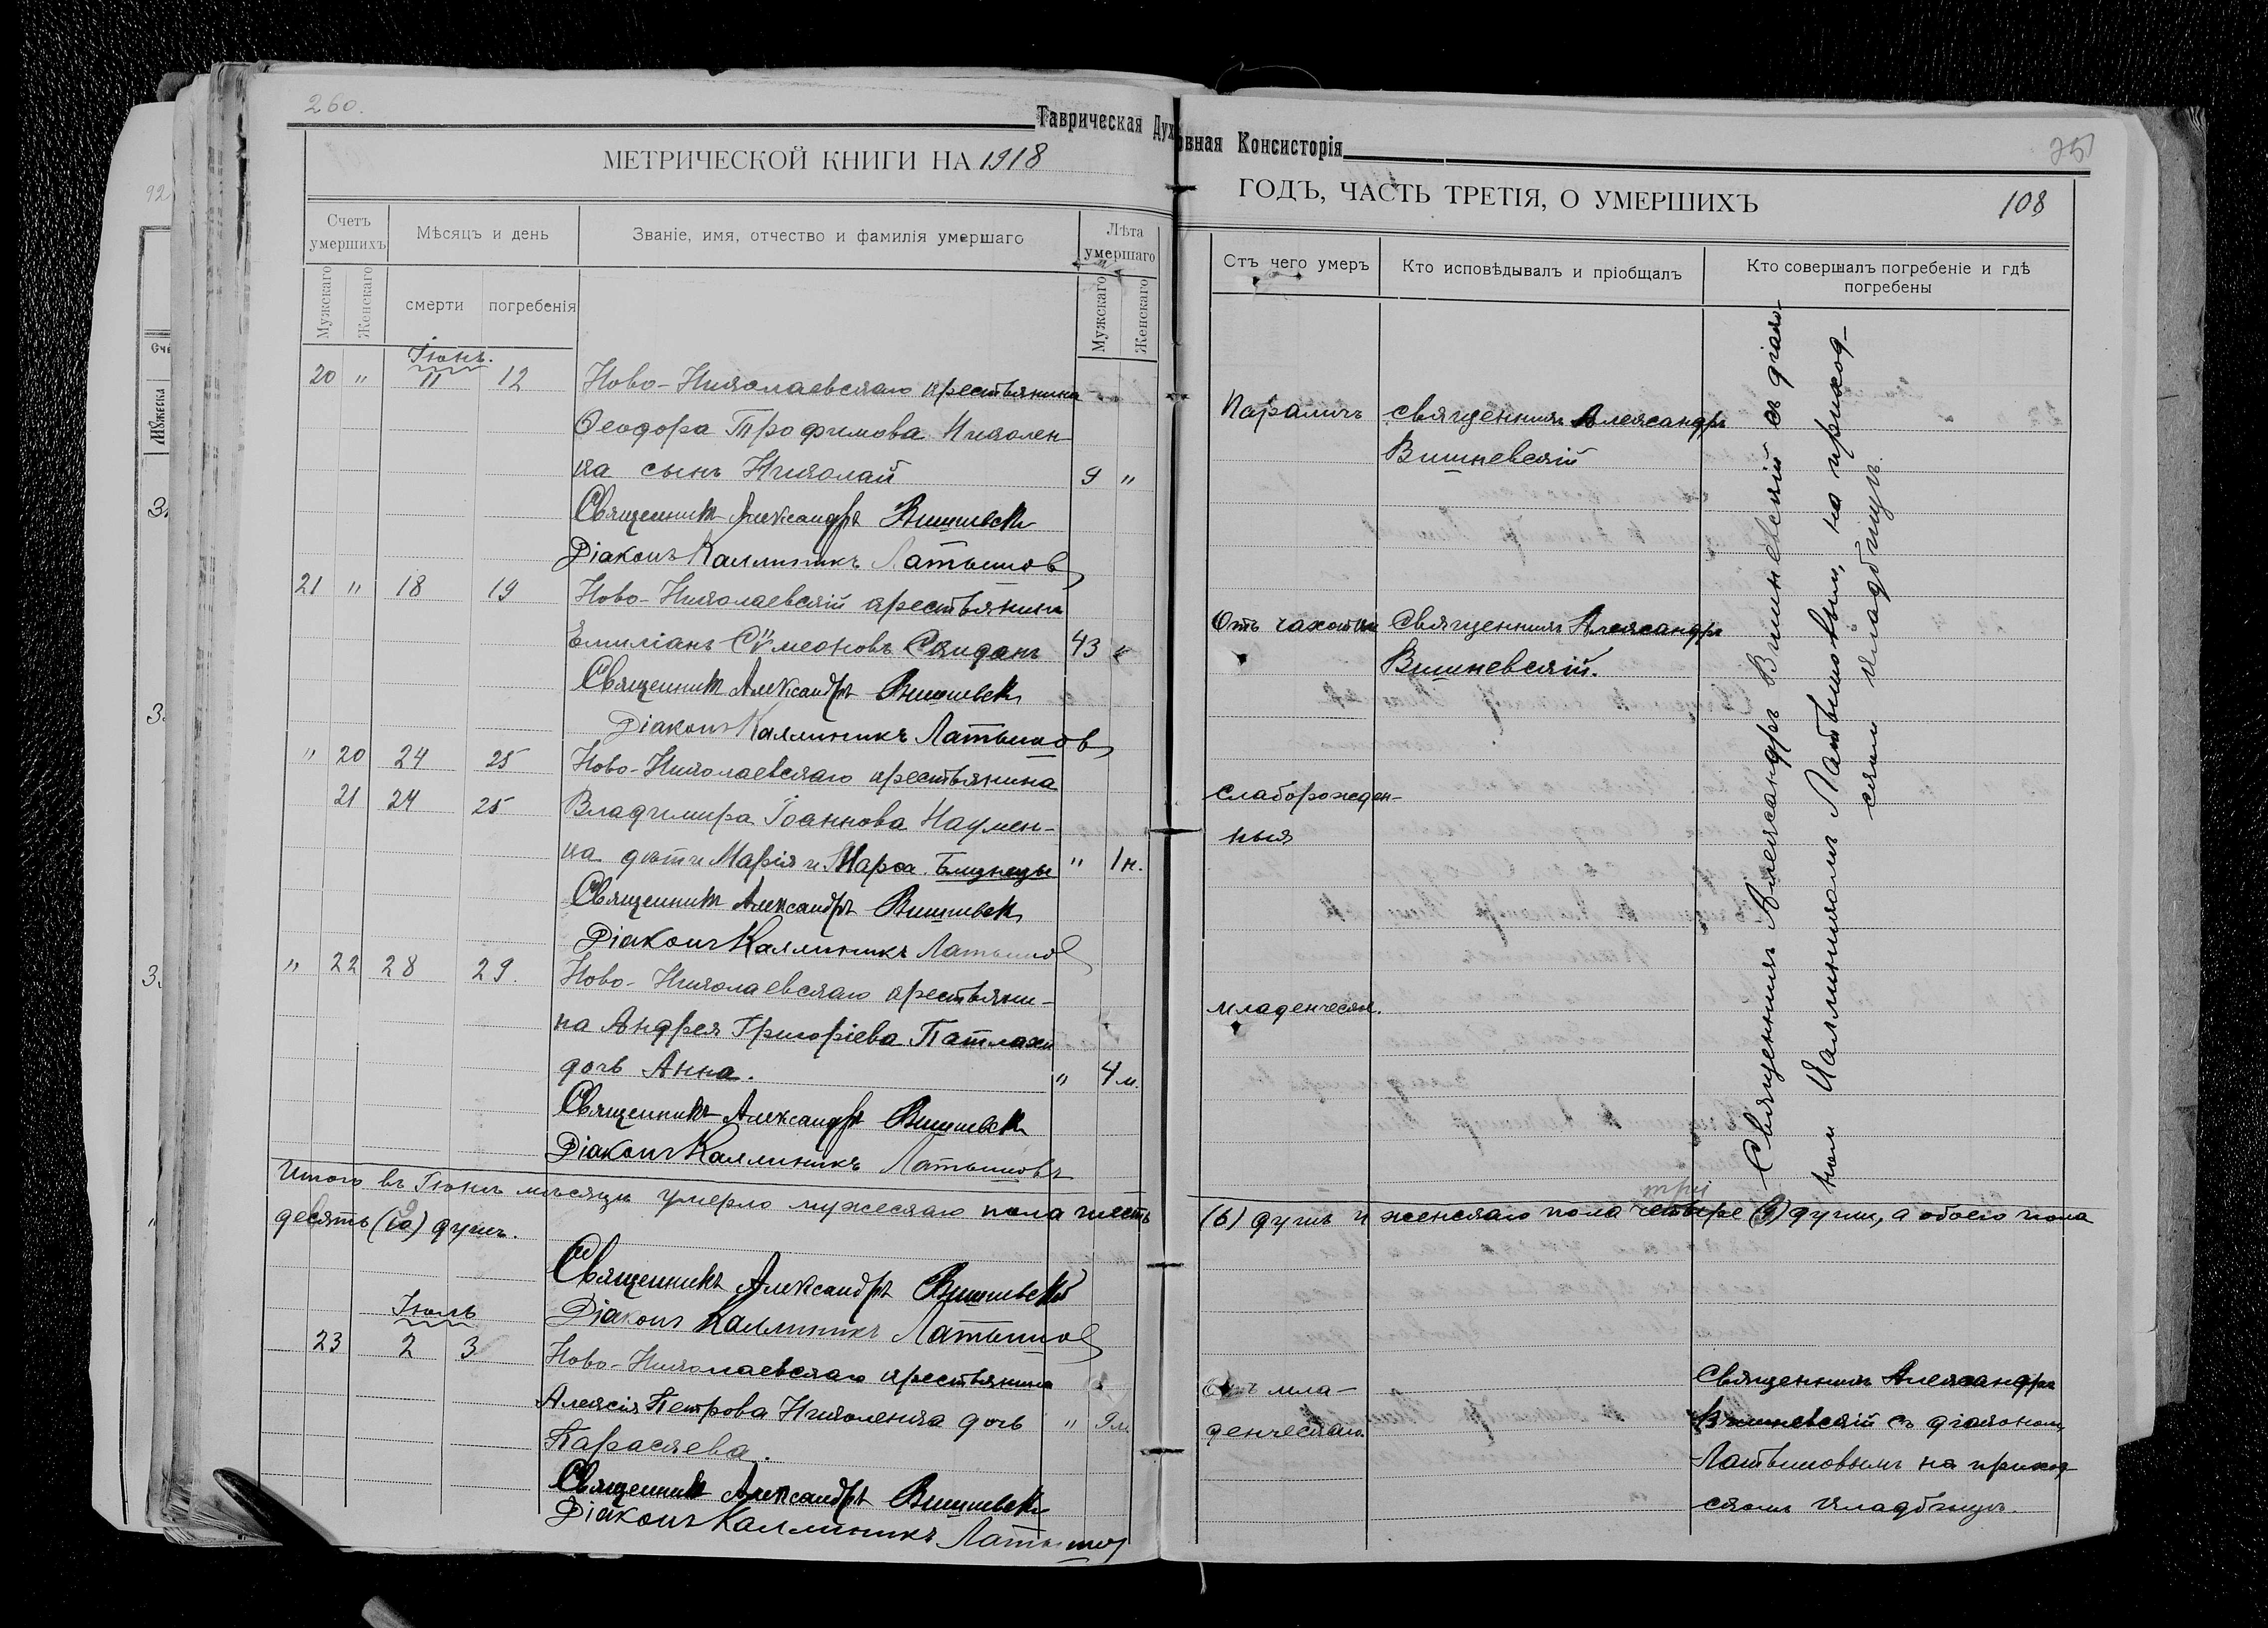 260.
Таврическая Духовная Консисторія
251
МЕТРИЧЕСКОЙ КНИГИ НА 1918
ГОДЪ, ЧАСТЬ ТРЕТІЯ, О УМЕРШИХЪ
108
Счетъ умершихъ
Мѣсяцъ и день
Званіе, имя, отчество и фамилія умершаго
Лѣта умершаго
Мужскаго
Женскаго
смерти
погребенія
Мужскаго
Женскаго
Отъ чего умеръ
Кто исповѣдывалъ и пріобщалъ
Кто совершалъ погребеніе и гдѣ погребены
Іюнь.
20 " 11 12 Ново-Николаевскаго крестьянина
Ѳеодора Трофимова Николен-
ка сынъ Николай 9 "
Священникъ Александръ Вишневскій
Діаконъ Каллиникъ Латышовъ
21 " 18 19 Ново-Николаевскій крестьянинъ
Емиліанъ Сѵмеоновъ 43 "
Священникъ Александръ Вишневскій
Діаконъ Каллиникъ Латышовъ
" 20 24 25 Ново-Николаевскаго крестьянина
21 24 25 Владимира Іоаннова Наумен-
ка дѣти Марія и Марѳа близнецы " 1н.
Священникъ Александръ Вишневскій
Діаконъ Каллиникъ Латышовъ
" 22 28 29. Ново-Николаевскаго крестьяни-
на Андрея Григоріева Патлахи
дочь Анна. " 4м.
Священникъ Александръ Вишневскій
Діаконъ Каллиникъ Латышовъ
Параличъ
священникъ Александръ
Вишневскій
Отъ чахотки
Священникъ Александръ
Вишневскій.
слаборожден-
ныя
младенческ.
Священникъ Александръ Вишневскій съ діако-
номъ Каллиникомъ Латышовымъ, на приход-
скомъ кладбищѣ.
Итого въ Іюнѣ мѣсяцѣ умерло мужескаго пола шесть
(6) душъ и женскаго пола четыре три (3) души, а обоего пола
десять (9) душъ.
Священникъ Александръ Вишневскій
Діаконъ Каллиникъ Латышовъ
Іюль
23 2 3 Ново-Николаевскаго крестьянина
Алексія Петрова Николенка дочь " 9м.
Параскева.
Священникъ Александръ Вишневскій
Діаконъ Каллиникъ Латышовъ
Отъ мла-
денческаго
Священникъ Александръ
Вишневскій съ діакономъ
Латышовымъ на приход-
скомъ кладбищѣ.